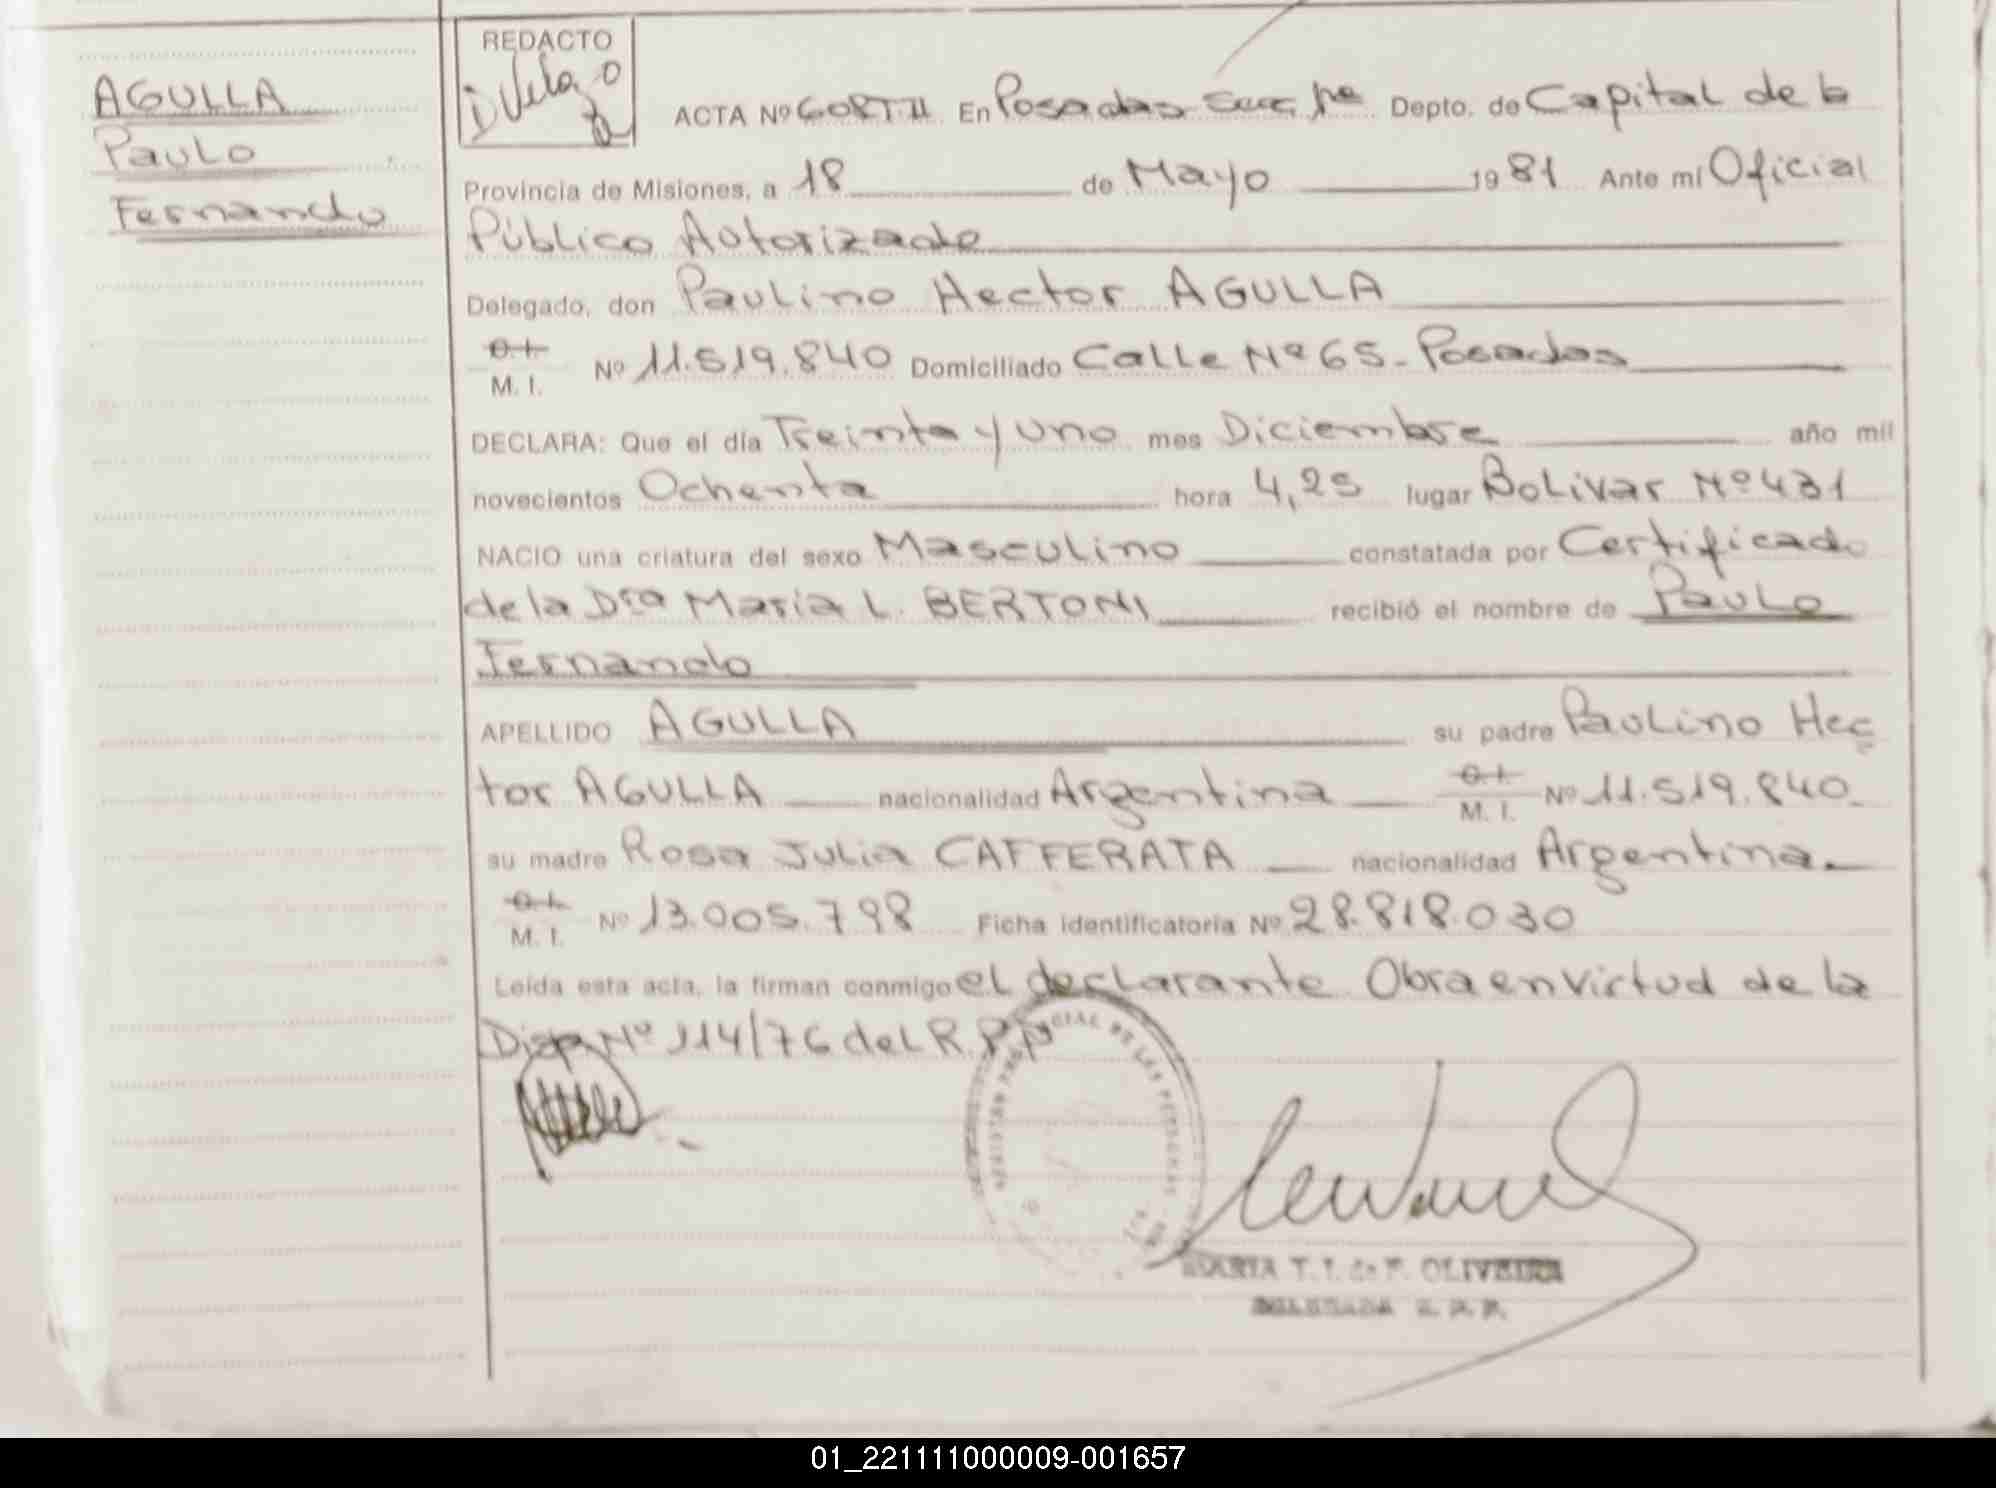 AGULLA
Paulo
Fernando
REDACTO
ACTA Nº 60 RT II En Posadas Secc 1ra Depto. de Capital de la
Provincia de Misiones, a 18 de Mayo 1981 Ante mí Oficial
Público Autorizado
Delegado, don Paulino Hector AGULLA
C.I.
M. I. Nº 11.519.840 Domiciliado Calle Nº 65 - Posadas
DECLARA: Que el día Treinta y uno mes Diciembre año mil
novecientos Ochenta hora 4,25 lugar Bolivar Nº 431
NACIO una criatura del sexo Masculino constatada por Certificado
de la Dra Maria L. BERTONI recibió el nombre de Paulo
Fernando
APELLIDO AGULLA su padre Paulino Hec
tor AGULLA nacionalidad Argentina C.I. M. I. Nº 11.519.840.
su madre Rosa Julia CAFFERATA nacionalidad Argentina.
C.I.
M. I. Nº 13.005.798 Ficha identificatoria Nº 28.818.030
Leída esta acta, la firman conmigo el declarante Obra en virtud de la
Disp Nº 114/76 del R.P.P
MARIA T. I. de F. OLIVEIRA
DELEGADA R. P. P.
01_221111000009-001657